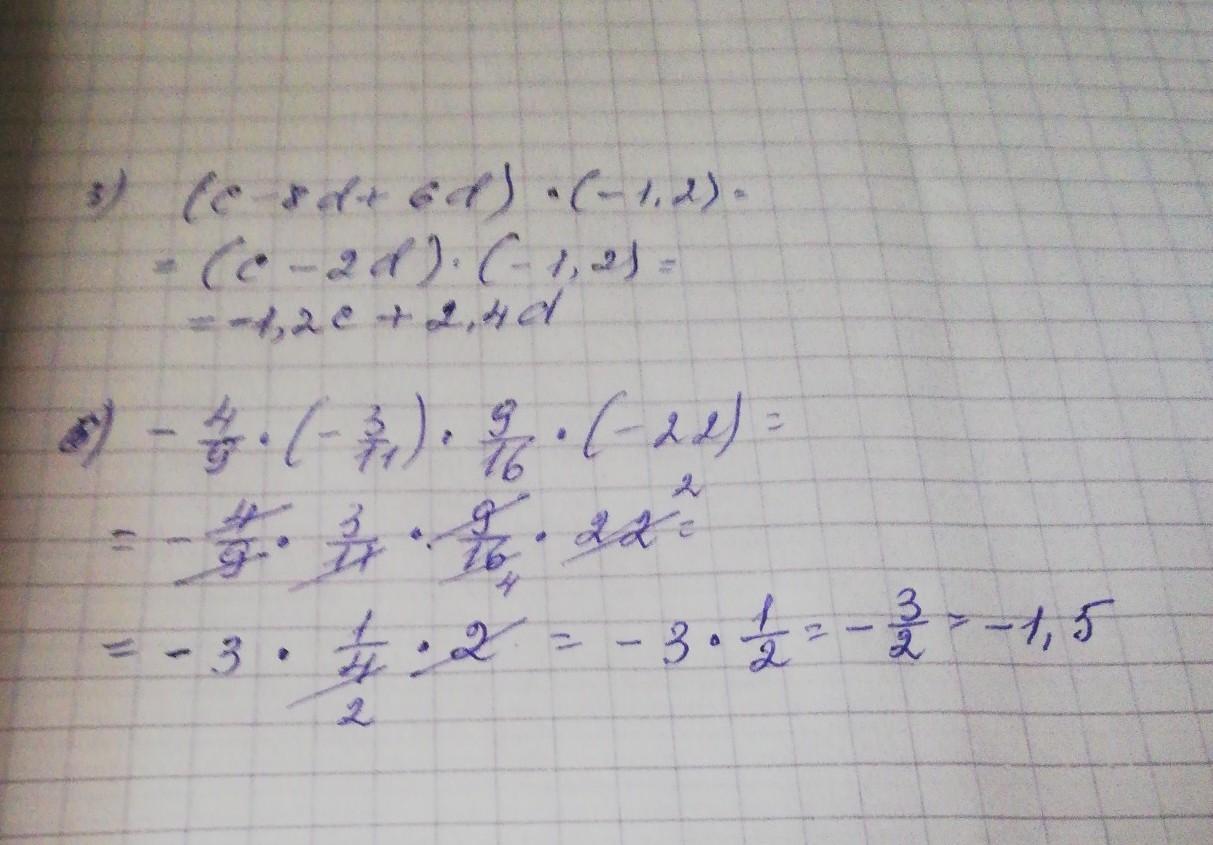 3) (c - 8d + 6d) · (-1,2) =
= (c - 2d) · (-1,2) =
= -1,2c + 2,4d
б) - 4/9 · (- 3/11) · 9/16 · (-22) =
= - 4/9 · 3/11 · 9/16 4 · 22 2 =
= - 3 · 1/4 2 · 2 = - 3 · 1/2 = - 3/2 = -1,5